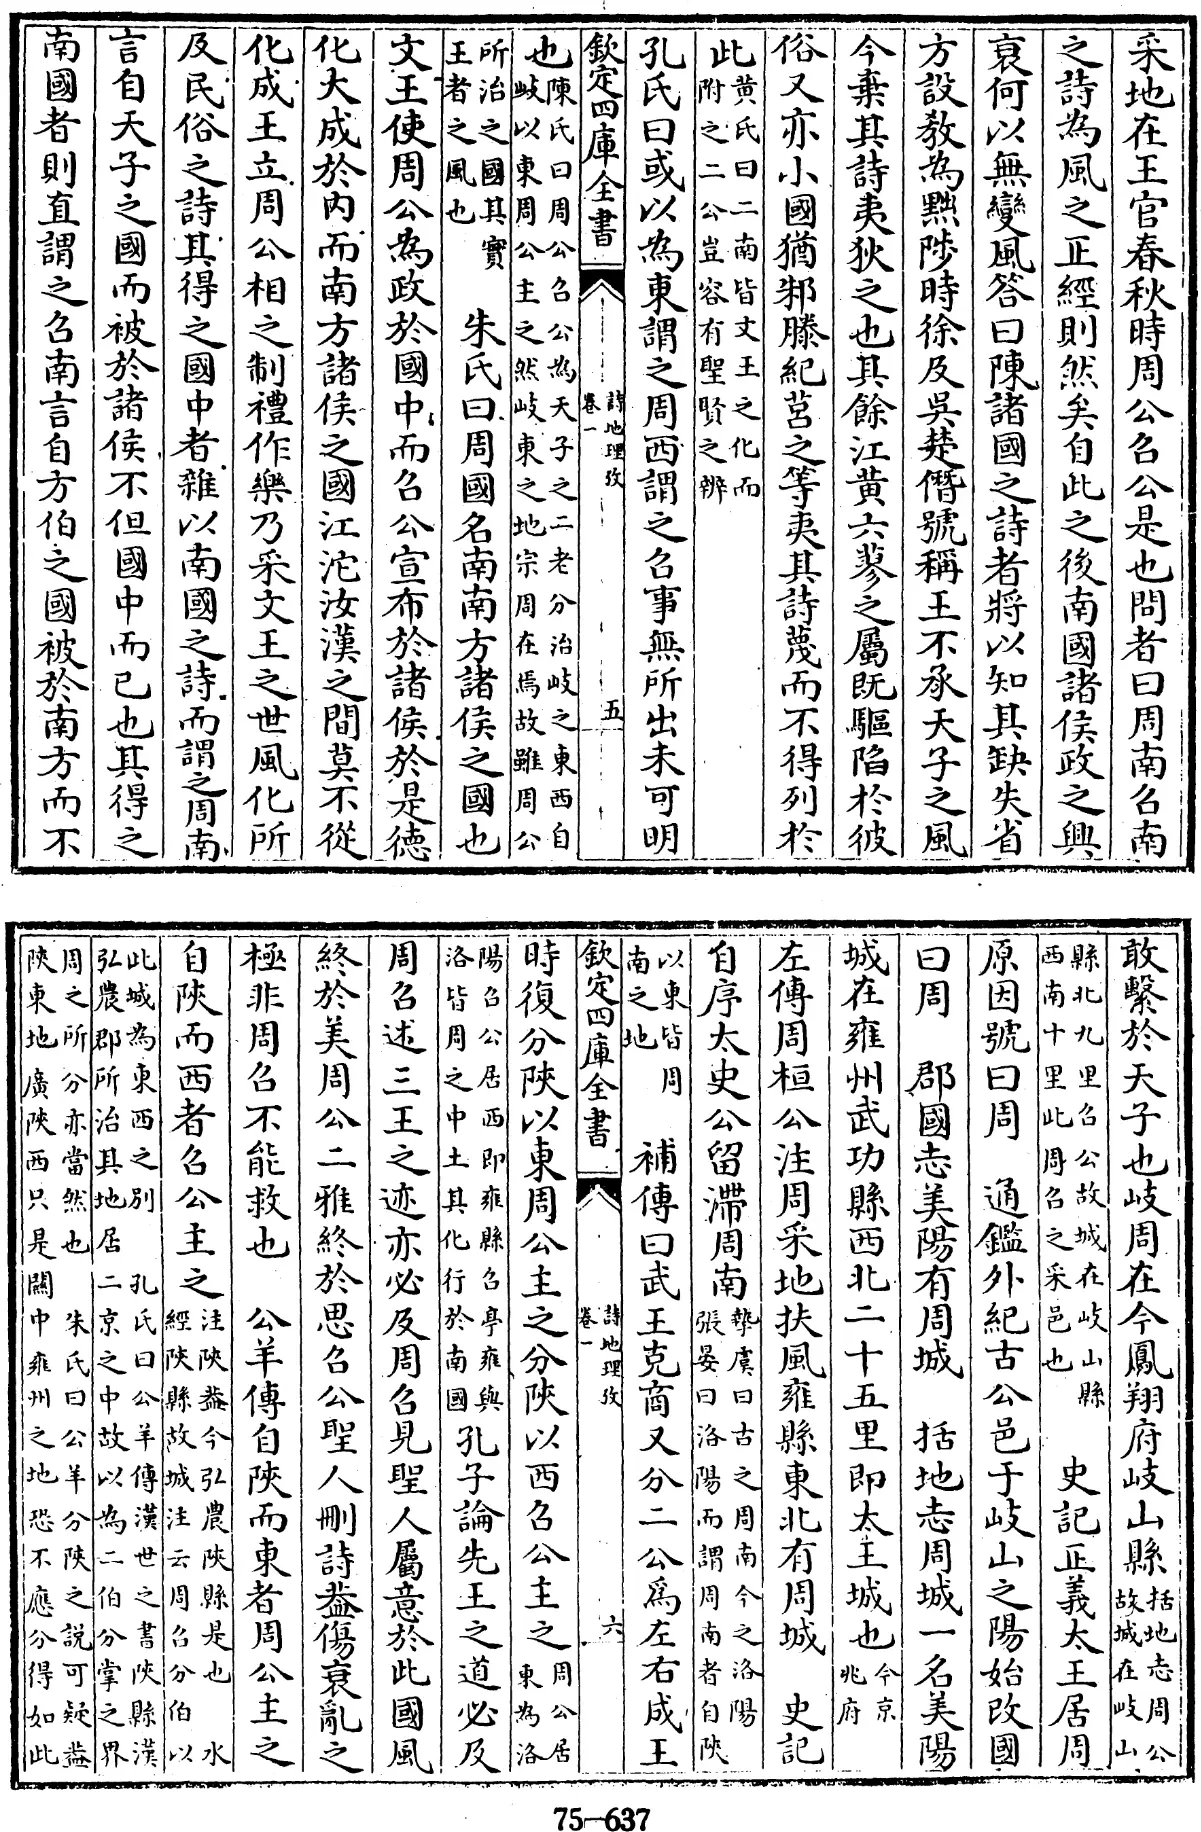 采地在王官春秋時周公召公是也問者曰周南召南
之詩為風之正經則然矣自此之後南國諸侯政之興
衰何以無變風答曰陳諸國之詩者將以知其缺失省
方設教為黜陟時徐及吳楚僭號稱王不承天子之風
今棄其詩夷狄之也其餘江黃六蓼之屬既驅陷於彼
俗又亦小國猶邾滕紀莒之等夷其詩蔑而不得列於
此黃氏曰二南皆文王之化而附之二公豈容有聖賢之辨
孔氏曰或以為東謂之周西謂之召事無所出未可明
欽定四庫全書 詩地理攷 卷一 五
也陳氏曰周公召公為天子之二老分治岐之東西自岐以東周公主之然岐東之地宗周在焉故雖周公
所治之國其實王者之風也 朱氏曰周國名南南方諸侯之國也
文王使周公為政於國中而召公宣布於諸侯於是德
化大成於內而南方諸侯之國江沱汝漢之間莫不從
化成王立周公相之制禮作樂乃采文王之世風化所
及民俗之詩其得之國中者雜以南國之詩而謂之周南
言自天子之國而被於諸侯不但國中而已也其得之
南國者則直謂之召南言自方伯之國被於南方而不
敢繫於天子也岐周在今鳳翔府岐山縣括地志周公故城在岐山
縣北九里召公故城在岐山縣西南十里此周召之采邑也 史記正義太王居周
原因號曰周 通鑑外紀古公邑于岐山之陽始改國
曰周 郡國志美陽有周城 括地志周城一名美陽
城在雍州武功縣西北二十五里即太王城也今京兆府
左傳周桓公注周采地扶風雍縣東北有周城 史記
自序太史公留滯周南摯虞曰古之周南今之洛陽張晏曰洛陽而謂周南者自陜
以東皆周南之地 補傳曰武王克商又分二公爲左右成王
欽定四庫全書 詩地理攷 卷一 六
時復分陜以東周公主之分陜以西召公主之周公居東為洛
陽召公居西即雍縣召亭雍與洛皆周之中土其化行於南國孔子論先王之道必及
周召述三王之迹亦必及周召見聖人屬意於此國風
終於美周公二雅終於思召公聖人刪詩葢傷衰亂之
極非周召不能救也 公羊傳自陜而東者周公主之
自陜而西者召公主之注陜葢今弘農陜縣是也 水經陜縣故城注云周召分伯以
此城為東西之別 孔氏曰公羊傳漢世之書陜縣漢弘農郡所治其地居二京之中故以為二伯分掌之界
周之所分亦當然也 朱氏曰公羊分陜之說可疑葢陜東地廣陜西只是關中雍州之地恐不應分得如此
75-637